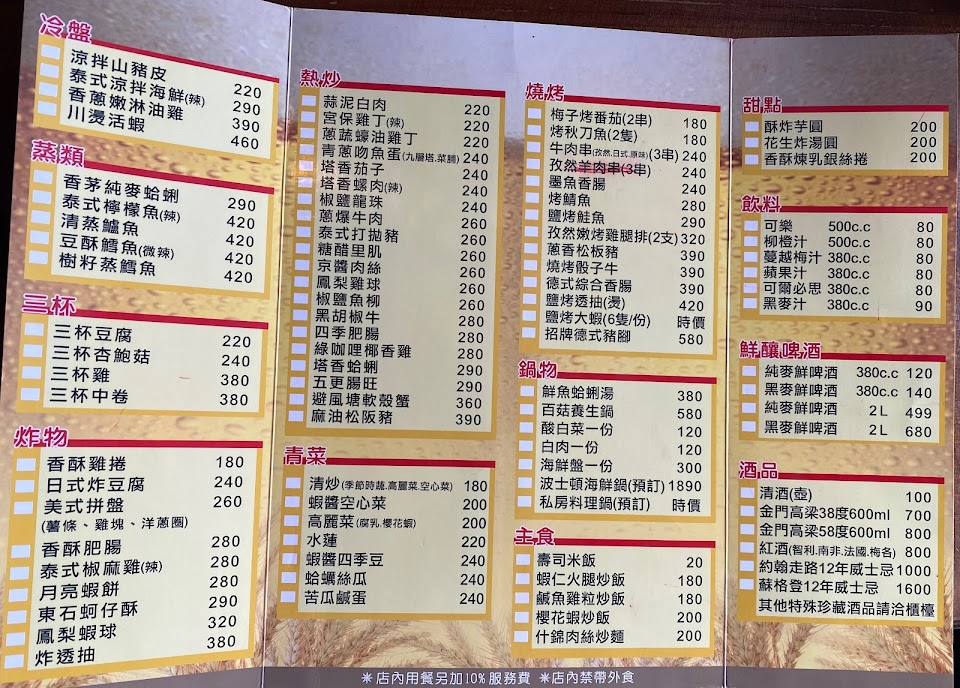 冷盤
涼拌山豬皮 220
泰式涼拌海鮮(辣) 290
香蔥嫩淋油雞 390
川燙活蝦 460
蒸類
香茅純麥蛤蜊 290
泰式檸檬魚(辣) 420
清蒸鱸魚 420
豆酥鱈魚(微辣) 420
樹籽蒸鱈魚 420
三杯
三杯豆腐 220
三杯杏鮑菇 240
三杯雞 380
三杯中卷 380
炸物
香酥雞捲 180
日式炸豆腐 240
美式拼盤 260
(薯條、雞塊、洋蔥圈)
香酥肥腸 280
泰式椒麻雞(辣) 280
月亮蝦餅 280
東石蚵仔酥 290
鳳梨蝦球 320
炸透抽 380
熱炒
蒜泥白肉 220
宮保雞丁(辣) 220
蔥蔬蠔油雞丁 220
青蔥吻魚蛋(九層塔.菜脯) 240
塔香茄子 240
塔香螺肉(辣) 240
椒鹽龍珠 240
蔥爆牛肉 240
泰式打拋豬 260
糖醋里肌 260
京醬肉絲 260
鳳梨雞球 260
椒鹽魚柳 260
黑胡椒牛 280
四季肥腸 280
綠咖哩椰香雞 280
塔香蛤蜊 290
五更腸旺 290
避風塘軟殼蟹 360
麻油松阪豬 390
青菜
清炒(季節時蔬.高麗菜.空心菜) 180
蝦醬空心菜 200
高麗菜(腐乳.櫻花蝦) 200
水蓮 220
蝦醬四季豆 240
蛤蠣絲瓜 240
苦瓜鹹蛋 240
燒烤
梅子烤番茄(2串) 180
烤秋刀魚(2隻) 180
牛肉串(孜然.日式.原味)(3串) 240
孜然羊肉串(3串) 240
墨魚香腸 240
烤鯖魚 280
鹽烤鮭魚 290
孜然嫩烤雞腿排(2支) 320
蔥香松板豬 390
燒烤骰子牛 390
德式綜合香腸 390
鹽烤透抽(燙) 420
鹽烤大蝦(6隻/份) 時價
招牌德式豬腳 580
鍋物
鮮魚蛤蜊湯 380
百菇養生鍋 580
酸白菜一份 120
白肉一份 120
海鮮盤一份 300
波士頓海鮮鍋(預訂) 1890
私房料理鍋(預訂) 時價
主食
壽司米飯 20
蝦仁火腿炒飯 180
鹹魚雞粒炒飯 180
櫻花蝦炒飯 200
什錦肉絲炒麵 200
甜點
酥炸芋圓 200
花生炸湯圓 200
香酥煉乳銀絲捲 200
飲料
可樂 500c.c 80
柳橙汁 500c.c 80
蔓越梅汁 380c.c 80
蘋果汁 380c.c 80
可爾必思 380c.c 80
黑麥汁 380c.c 90
鮮釀啤酒
純麥鮮啤酒 380c.c 120
黑麥鮮啤酒 380c.c 140
純麥鮮啤酒 2L 499
黑麥鮮啤酒 2L 680
酒品
清酒(壺) 100
金門高梁38度600ml 700
金門高梁58度600ml 800
紅酒(智利.南非.法國.梅各) 800
約翰走路12年威士忌 1000
蘇格登12年威士忌 1600
其他特殊珍藏酒品請洽櫃檯
✳店內用餐另加10%服務費 ✳店內禁帶外食